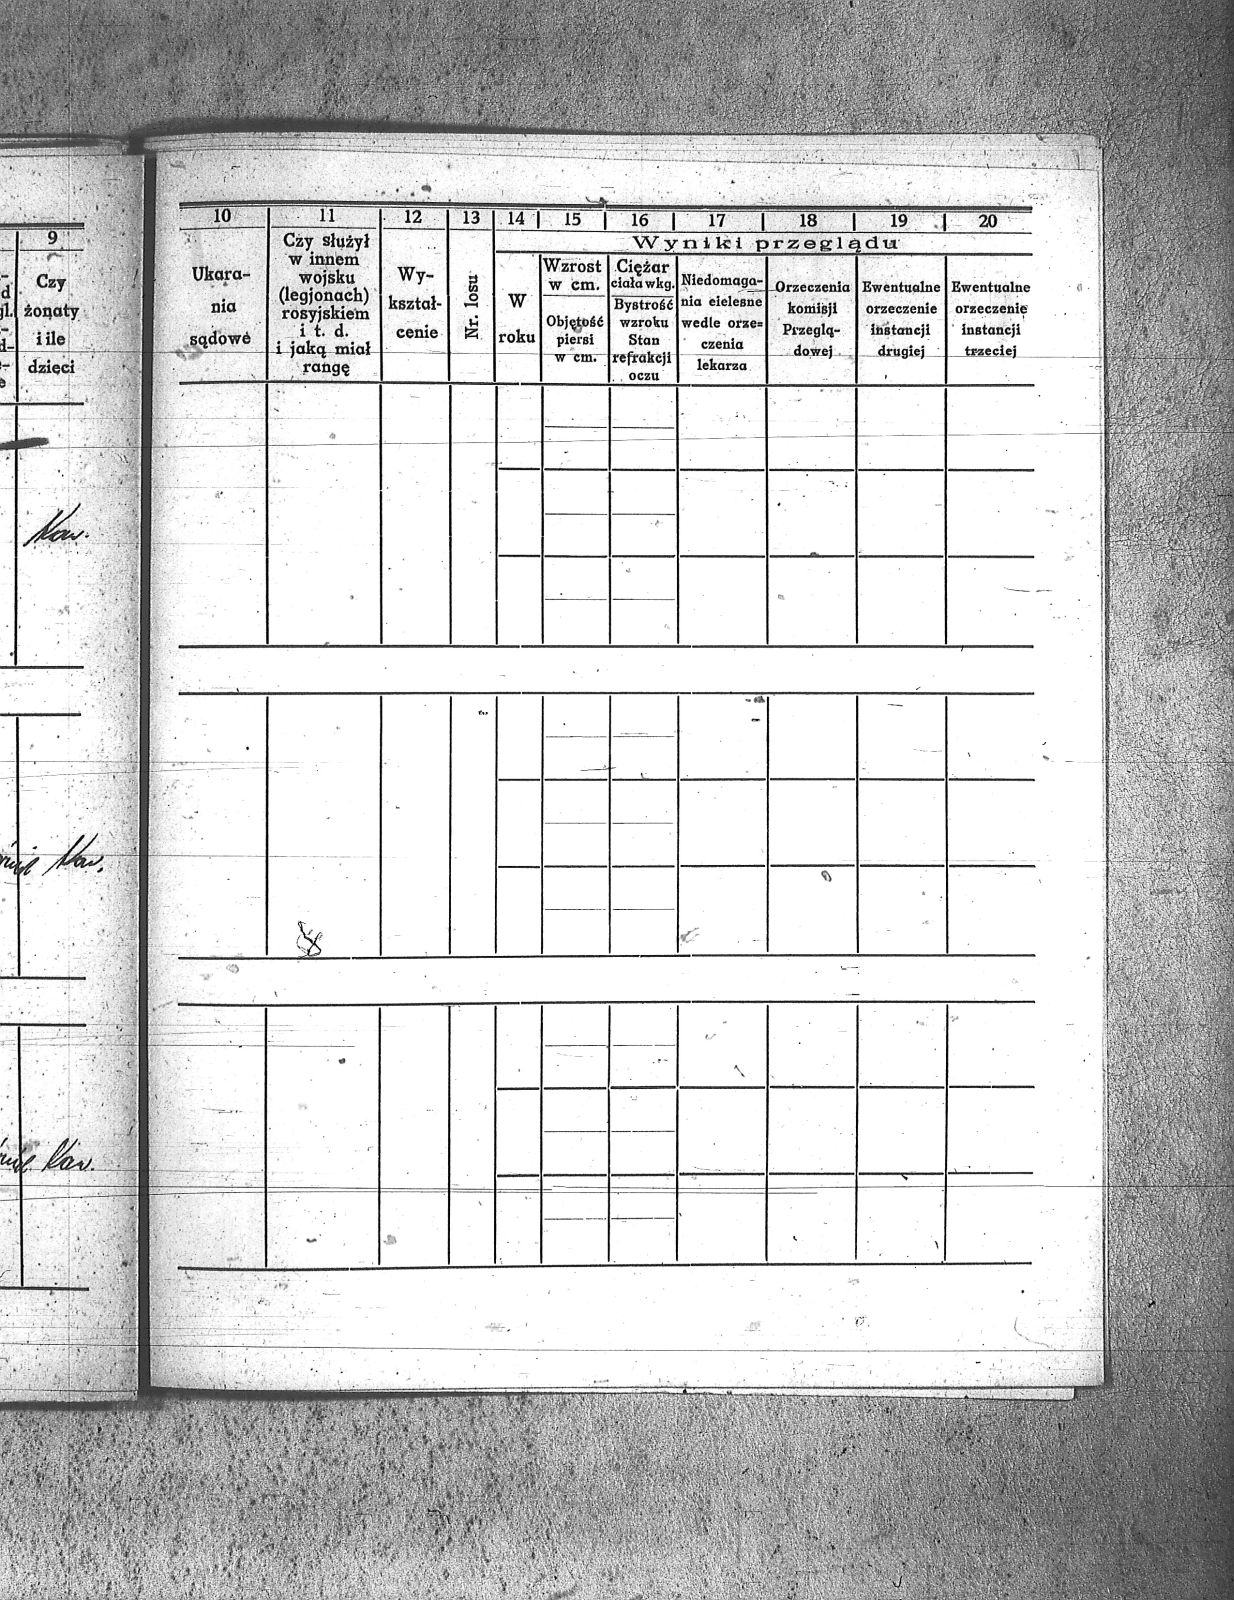 9
Czy
żonaty
i ile
dzięci
Kaw.
Kaw.
Kaw.
10 11 12 13 14 15 16 17 18 19 20
Ukara-
nia
sądowe
Czy służył
w innem
wojsku
(legjonach)
rosyjskiem
i t. d.
i jaką miał
rangę
Wy-
kształ-
cenie
Nr. losu
Wyniki przeglądu
W
roku
Wzrost
w cm.
Objętość
piersi
w cm.
Ciężar
ciała w kg.
Bystrość
wzroku
Stan
refrakcji
oczu
Niedomaga-
nia eielesne
wedle orze=
czenia
lekarza
Orzeczenia
komisji
Przeglą-
dowej
Ewentualne
orzeczenie
instancji
drugiej
Ewentualne
orzeczenie
instancji
trzeciej